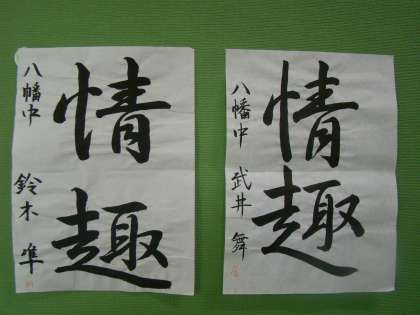 情趣
八幡中 武井 舞
情趣
八幡中 鈴木 隼